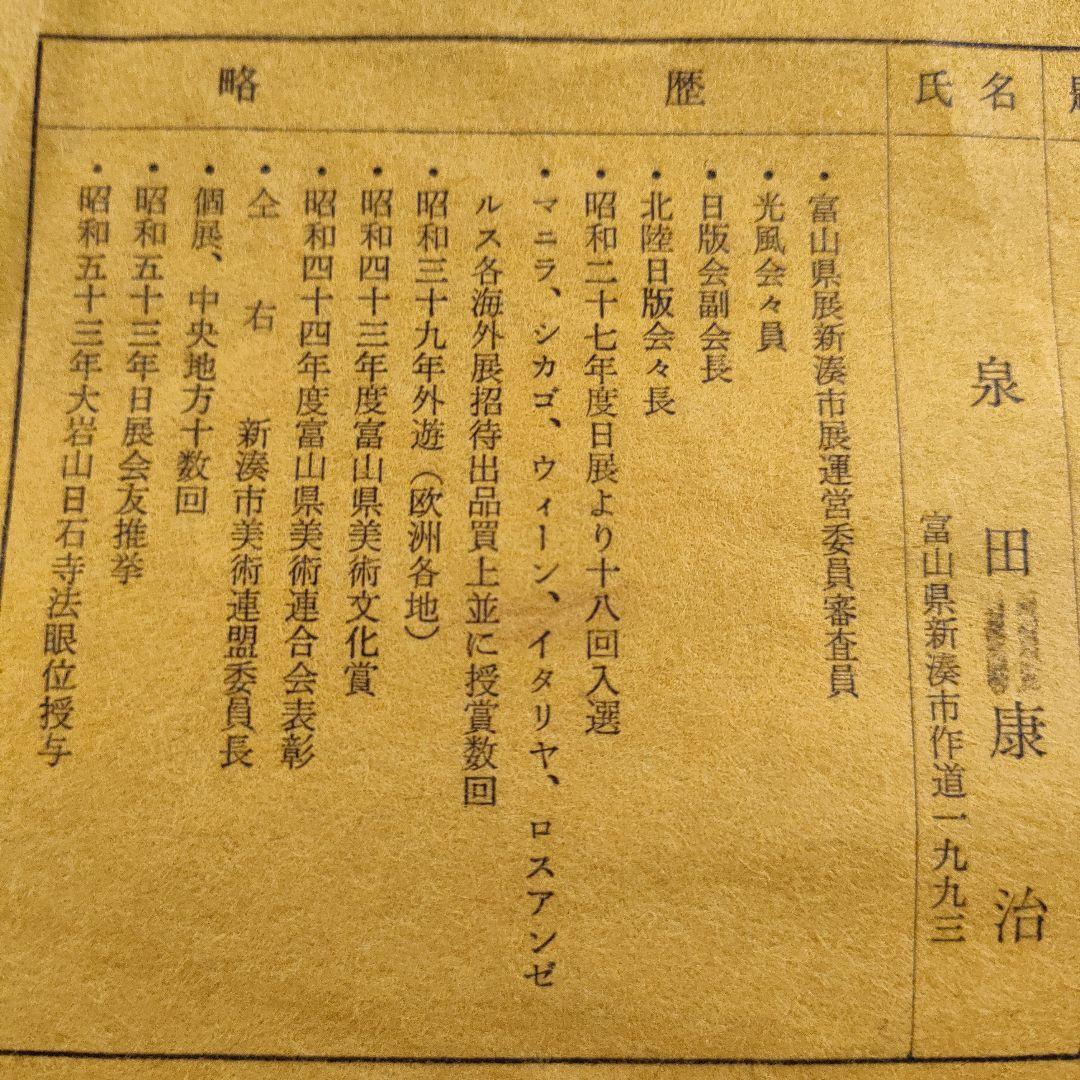 氏名
泉田康治
富山県新湊市作道一九九三
略歴
・富山県展新湊市展運営委員審査員
・光風会々員
・日版会副会長
・北陸日版会々長
・昭和二十七年度日展より十八回入選
・マニラ、シカゴ、ウィーン、イタリヤ、ロスアンゼ
ルス各海外展招待出品買上並に授賞数回
・昭和三十九年外遊（欧洲各地）
・昭和四十三年度富山県美術文化賞
・昭和四十四年度富山県美術連合会表彰
・仝右 新湊市美術連盟委員長
・個展、中央地方十数回
・昭和五十三年日展会友推挙
・昭和五十三年大岩山日石寺法眼位授与